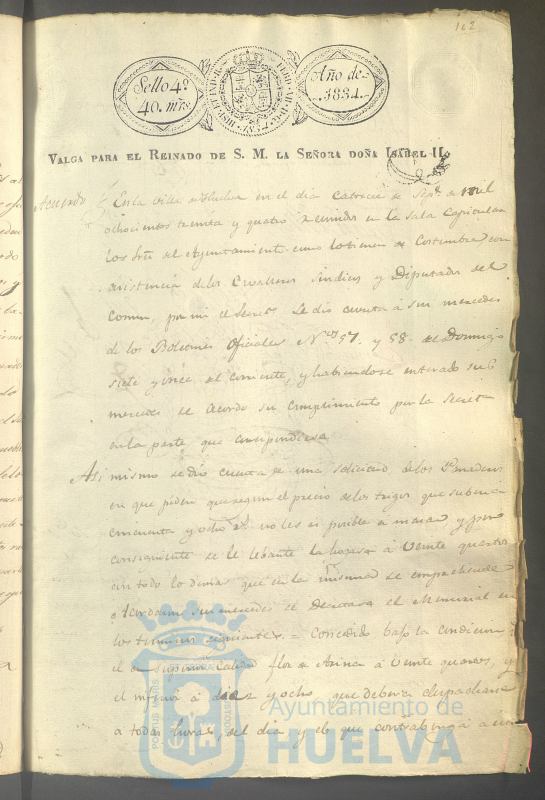 162
Sello 4º
40. mrs
HISP. ET IND. R.
Año de
1834.
VALGA PARA EL REINADO DE S. M. LA SEÑORA DOÑA ISABEL II.
Acuerdo
En la villa de Huelva en el dia Catorce de Sepe. de mil
ochocientos treinta y quatro reunidos en la Sala Capitular
los Sres del Ayuntamiento como lo tienen de Costumbre con
asistencia de los Cavalleros Sindicos y Diputados del
Comun, por mi el Secreto. Se dio cuenta á sus mercedes
de los Boletines Oficiales Nos 57. y 58. del Domingo
siete y once del corriente, y habiendose enterado sus
mercedes se Acordo su Cumplimiento por la Secreta
en la parte que corresponda
Asi mismo se dio cuenta de una solicitud de los Panaderos
en que piden que segun el precio de los trigos que suben á
cincuenta y ocho rs no les es posible amasar y por
consiguiente se le lebante la hogaza á Veinte quartos
con todo lo demas que en la misma se
Acordaron sus mercedes se Decretara el Memorial en
los terminos siguientes = Concedido bajo la condicion
el de superior Calidad flor de Arina á Veinte quartos, y
el inferior á diez y ocho, que deberan despachar
a todas horas, del dia y el que contrabenga á
Ayuntamiento de
HUELVA